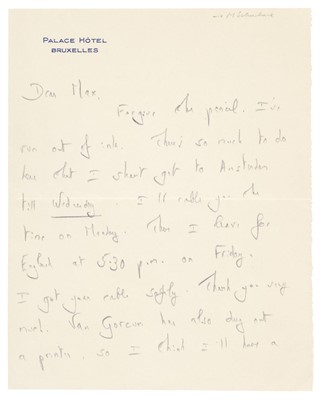 PALACE HÔTEL
BRUXELLES
Dear Max,
Forgive the pencil. I've
run out of ink. There's so much to do
here that I shant get to Amsterdam
till Wednesday. I'll cable you the
time on Monday. Then I leave for
England at 5.30 p.m. on Friday.
I got your cable safely. Thank you very
much. Van Gorcum has also dug out
a printer, so I think I'll have a